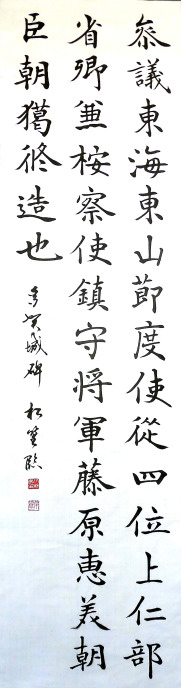 叅議東海東山節度使從四位上仁部
省卿兼桉察使鎮守将軍藤原惠美朝
臣朝獦修造也
多賀城碑 松笙臨